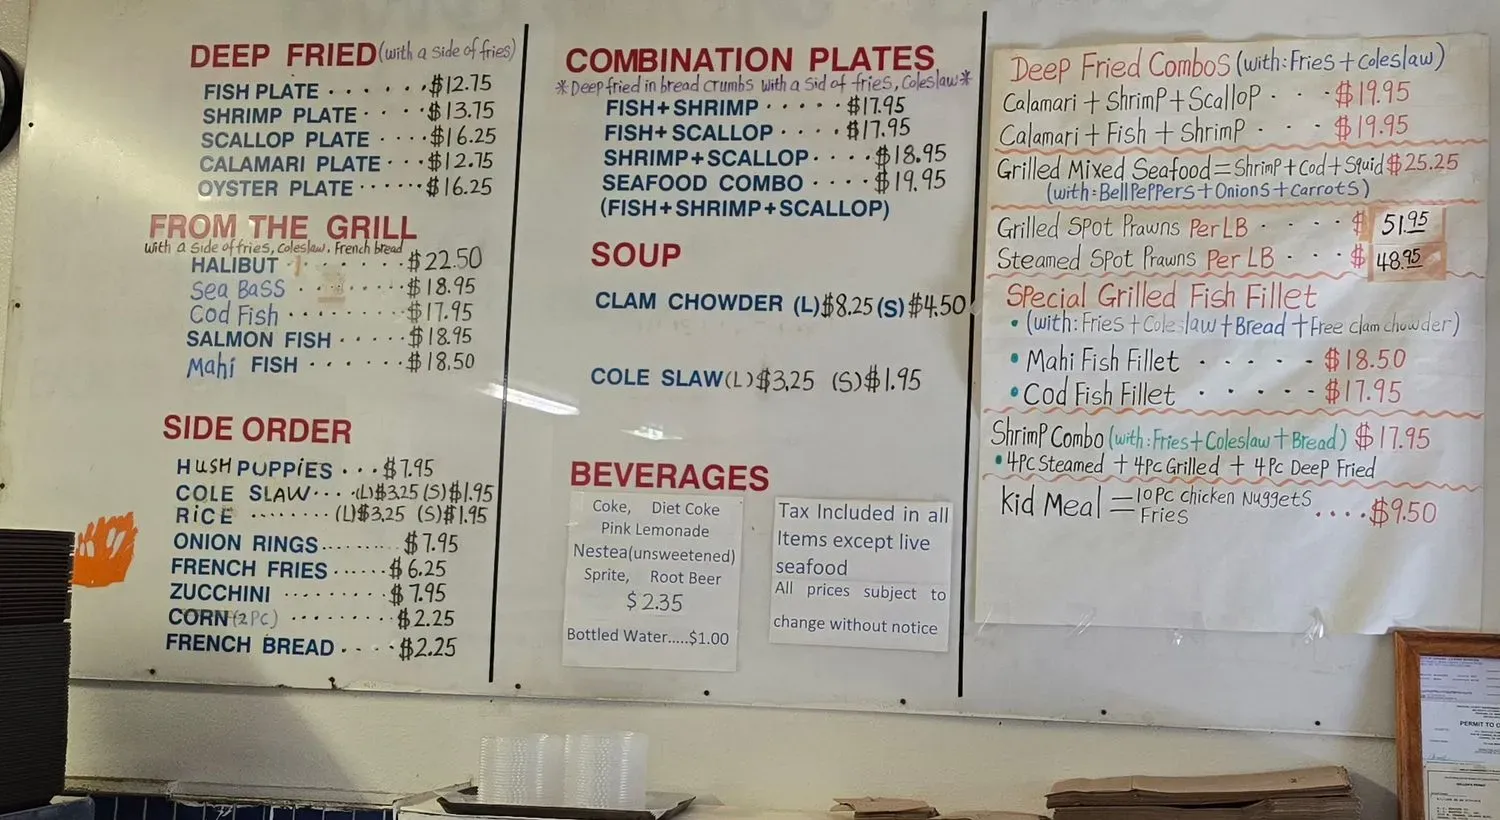 DEEP FRIED (with a side of fries)
FISH PLATE · · · · · · $12.75
SHRIMP PLATE · · · · $13.75
SCALLOP PLATE · · · · $16.25
CALAMARI PLATE · · · $12.75
OYSTER PLATE · · · · · · $16.25
FROM THE GRILL
with a side of fries, Coleslaw, French bread
HALIBUT · · · · · · · $22.50
Sea Bass · · · · · · · $18.95
Cod Fish · · · · · · · · $17.95
SALMON FISH · · · · · $18.95
Mahi FISH · · · · · · $18.50
SIDE ORDER
HUSH PUPPiES · · · $7.95
COLE SLAW · · · · (L)$3.25 (S)$1.95
RiCE · · · · · · · · (L)$3.25 (S)$1.95
ONION RINGS ......... $7.95
FRENCH FRIES ...... $6.25
ZUCCHINI · · · · · · · · $7.95
CORN (2PC) · · · · · · · · $2.25
FRENCH BREAD · · · · $2.25
COMBINATION PLATES
*Deep fried in bread crumbs with a sid of fries, Coleslaw*
FISH+SHRIMP · · · · · $17.95
FISH+SCALLOP · · · · $17.95
SHRIMP+SCALLOP · · · · $18.95
SEAFOOD COMBO · · · · $19.95
(FISH+SHRIMP+SCALLOP)
SOUP
CLAM CHOWDER (L)$8.25 (S)$4.50
COLE SLAW (L)$3.25 (S)$1.95
BEVERAGES
Coke, Diet Coke
Pink Lemonade
Nestea(unsweetened)
Sprite, Root Beer
$ 2.35
Bottled Water.....$1.00
Tax Included in all
Items except live
seafood
All prices subject to
change without notice
Deep Fried Combos (with: Fries + Coleslaw)
Calamari + Shrimp + Scallop · · · $19.95
Calamari + Fish + Shrimp · · · $19.95
Grilled Mixed Seafood = Shrimp + Cod + Squid $25.25
(with: Bell Peppers + Onions + Carrots)
Grilled Spot Prawns Per LB · · · · $ 51.95
Steamed Spot Prawns Per LB · · · $ 48.95
Special Grilled Fish Fillet
• (with: Fries + Coleslaw + Bread + Free clam chowder)
• Mahi Fish Fillet · · · · · $18.50
• Cod Fish Fillet · · · · · $17.95
Shrimp Combo (with: Fries + Coleslaw + Bread) $17.95
• 4PC Steamed + 4PC Grilled + 4PC Deep Fried
Kid Meal = 10PC Chicken Nuggets
Fries .... $9.50
PERMIT TO